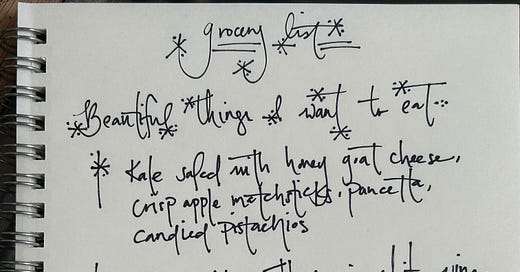 grocery list
Beautiful things I want to eat...
* Kale salad with honey goat cheese,
crisp apple matchsticks, pancetta,
candied pistachios